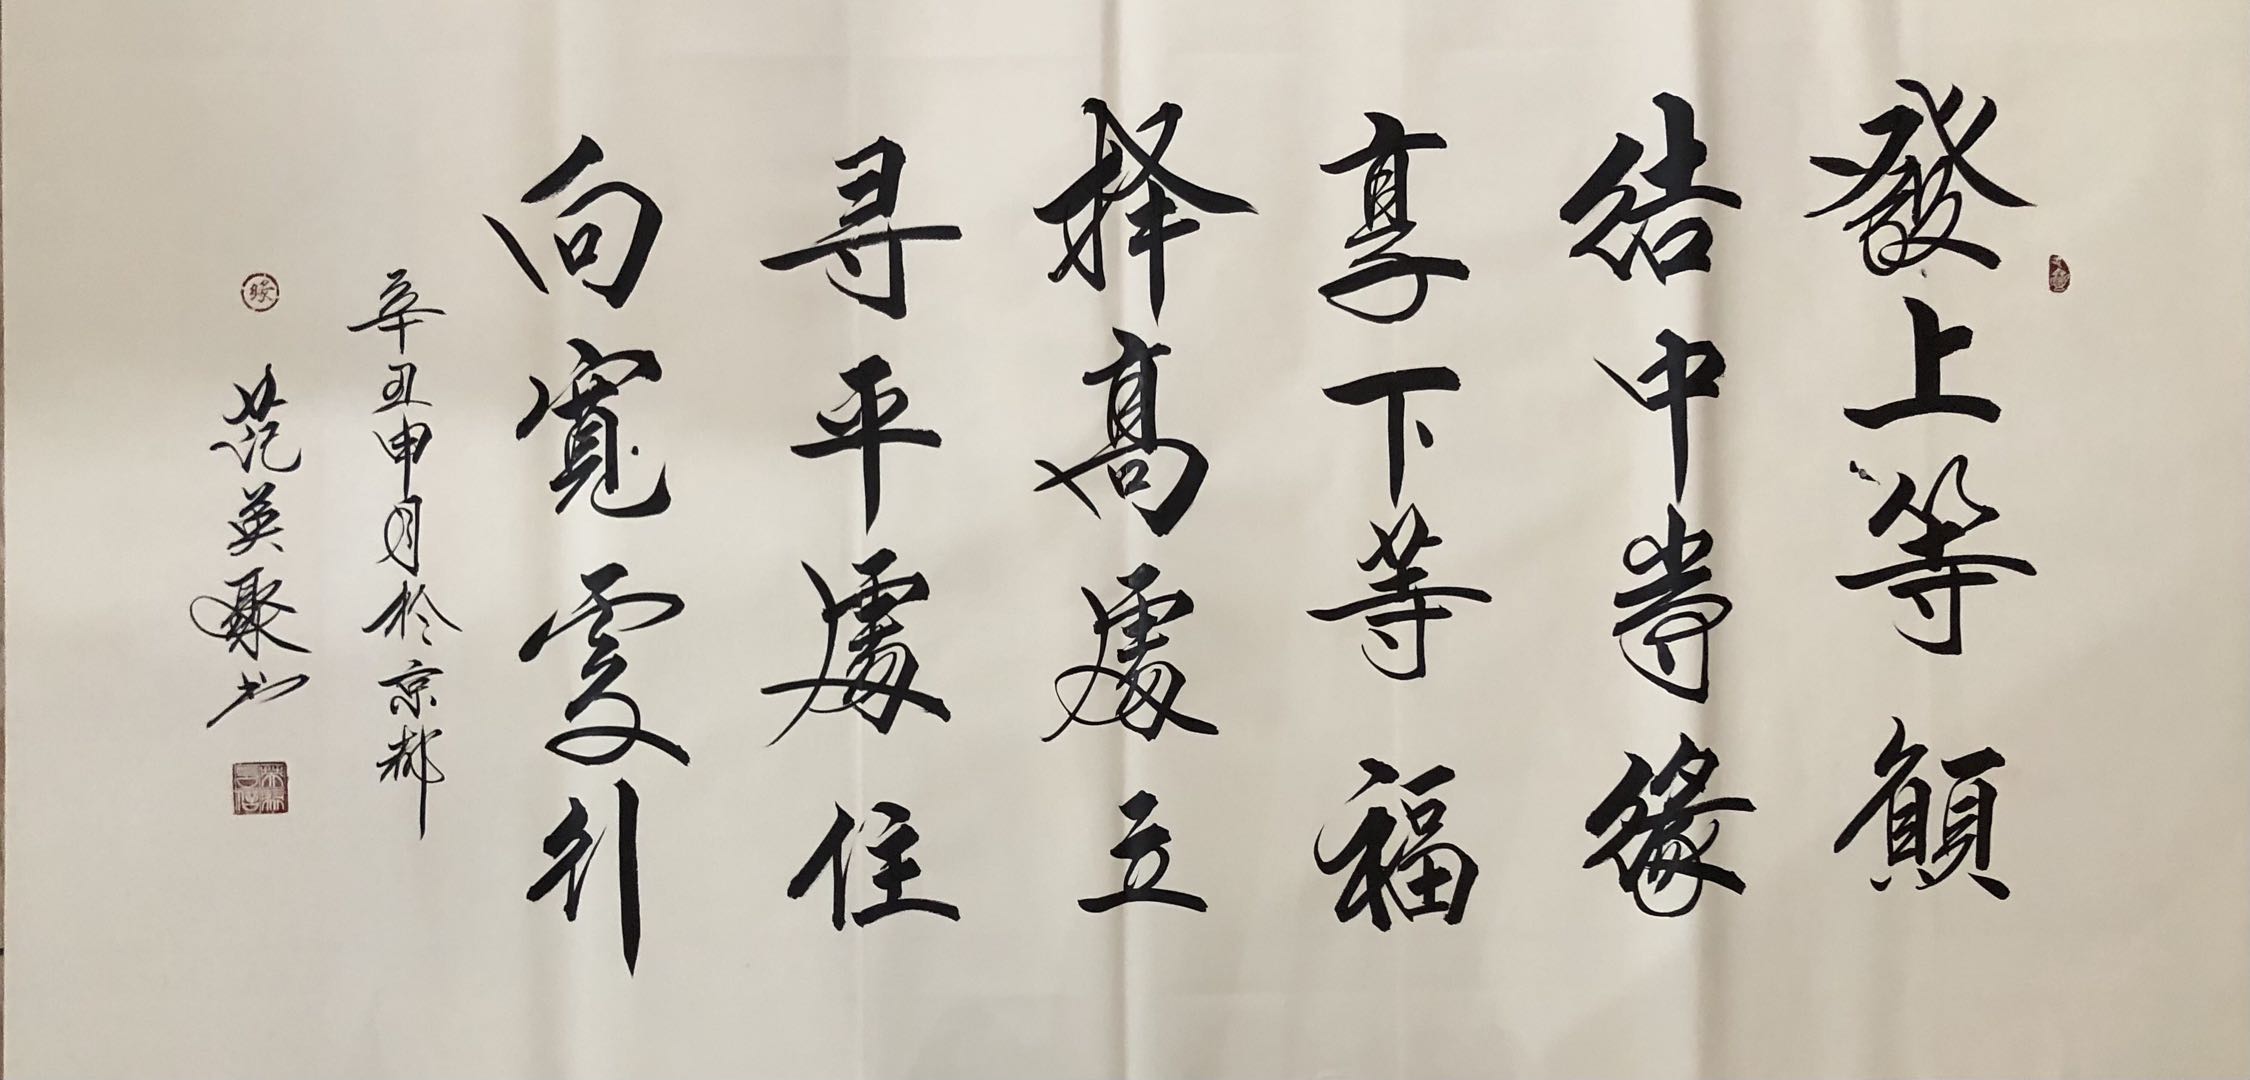 發上等願
结中等緣
享下等福
择高處立
寻平處住
向寬處行
辛丑申月於京都
范英聚书